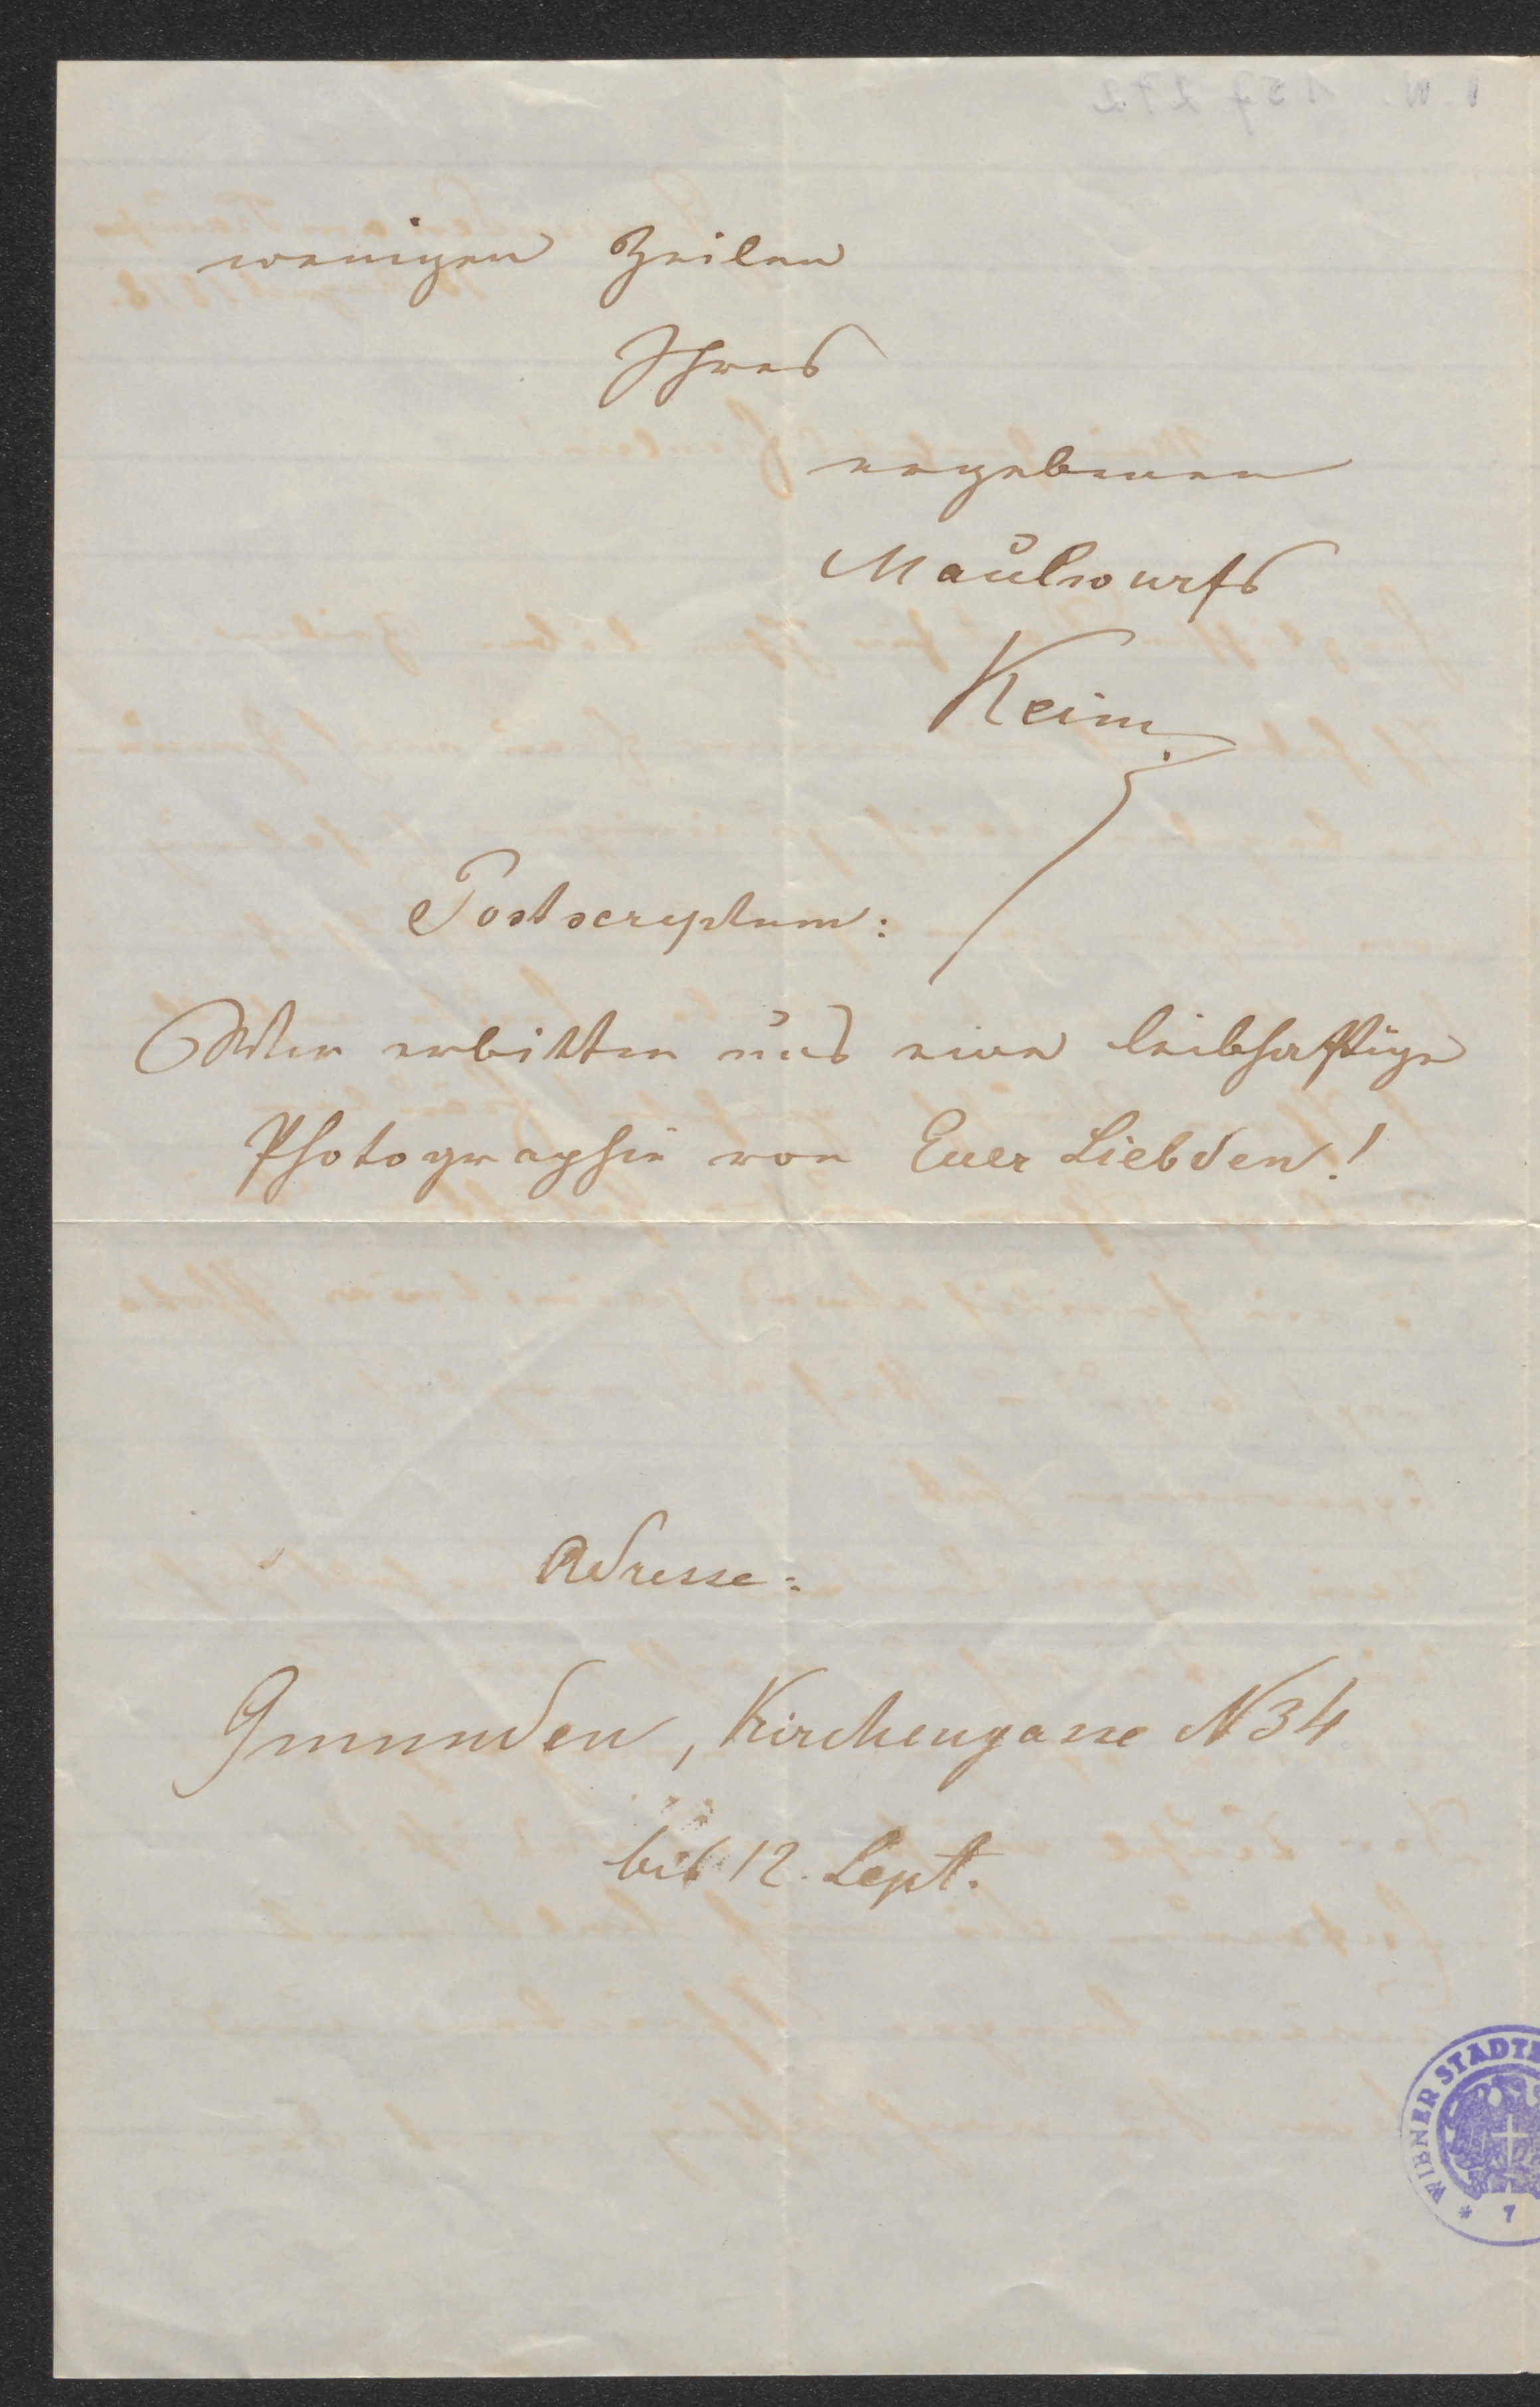 wenigen Zeilen
Ihres
ergebenen
Maulwurfs
Keim.
Postscriptum:
Wir erbitten uns eine leibhaftige
Photographie von Euer Liebden!
Adresse:
Gmunden, Kirchengasse N 34
bis 12. Sept.
WIENER STADTB
* 7